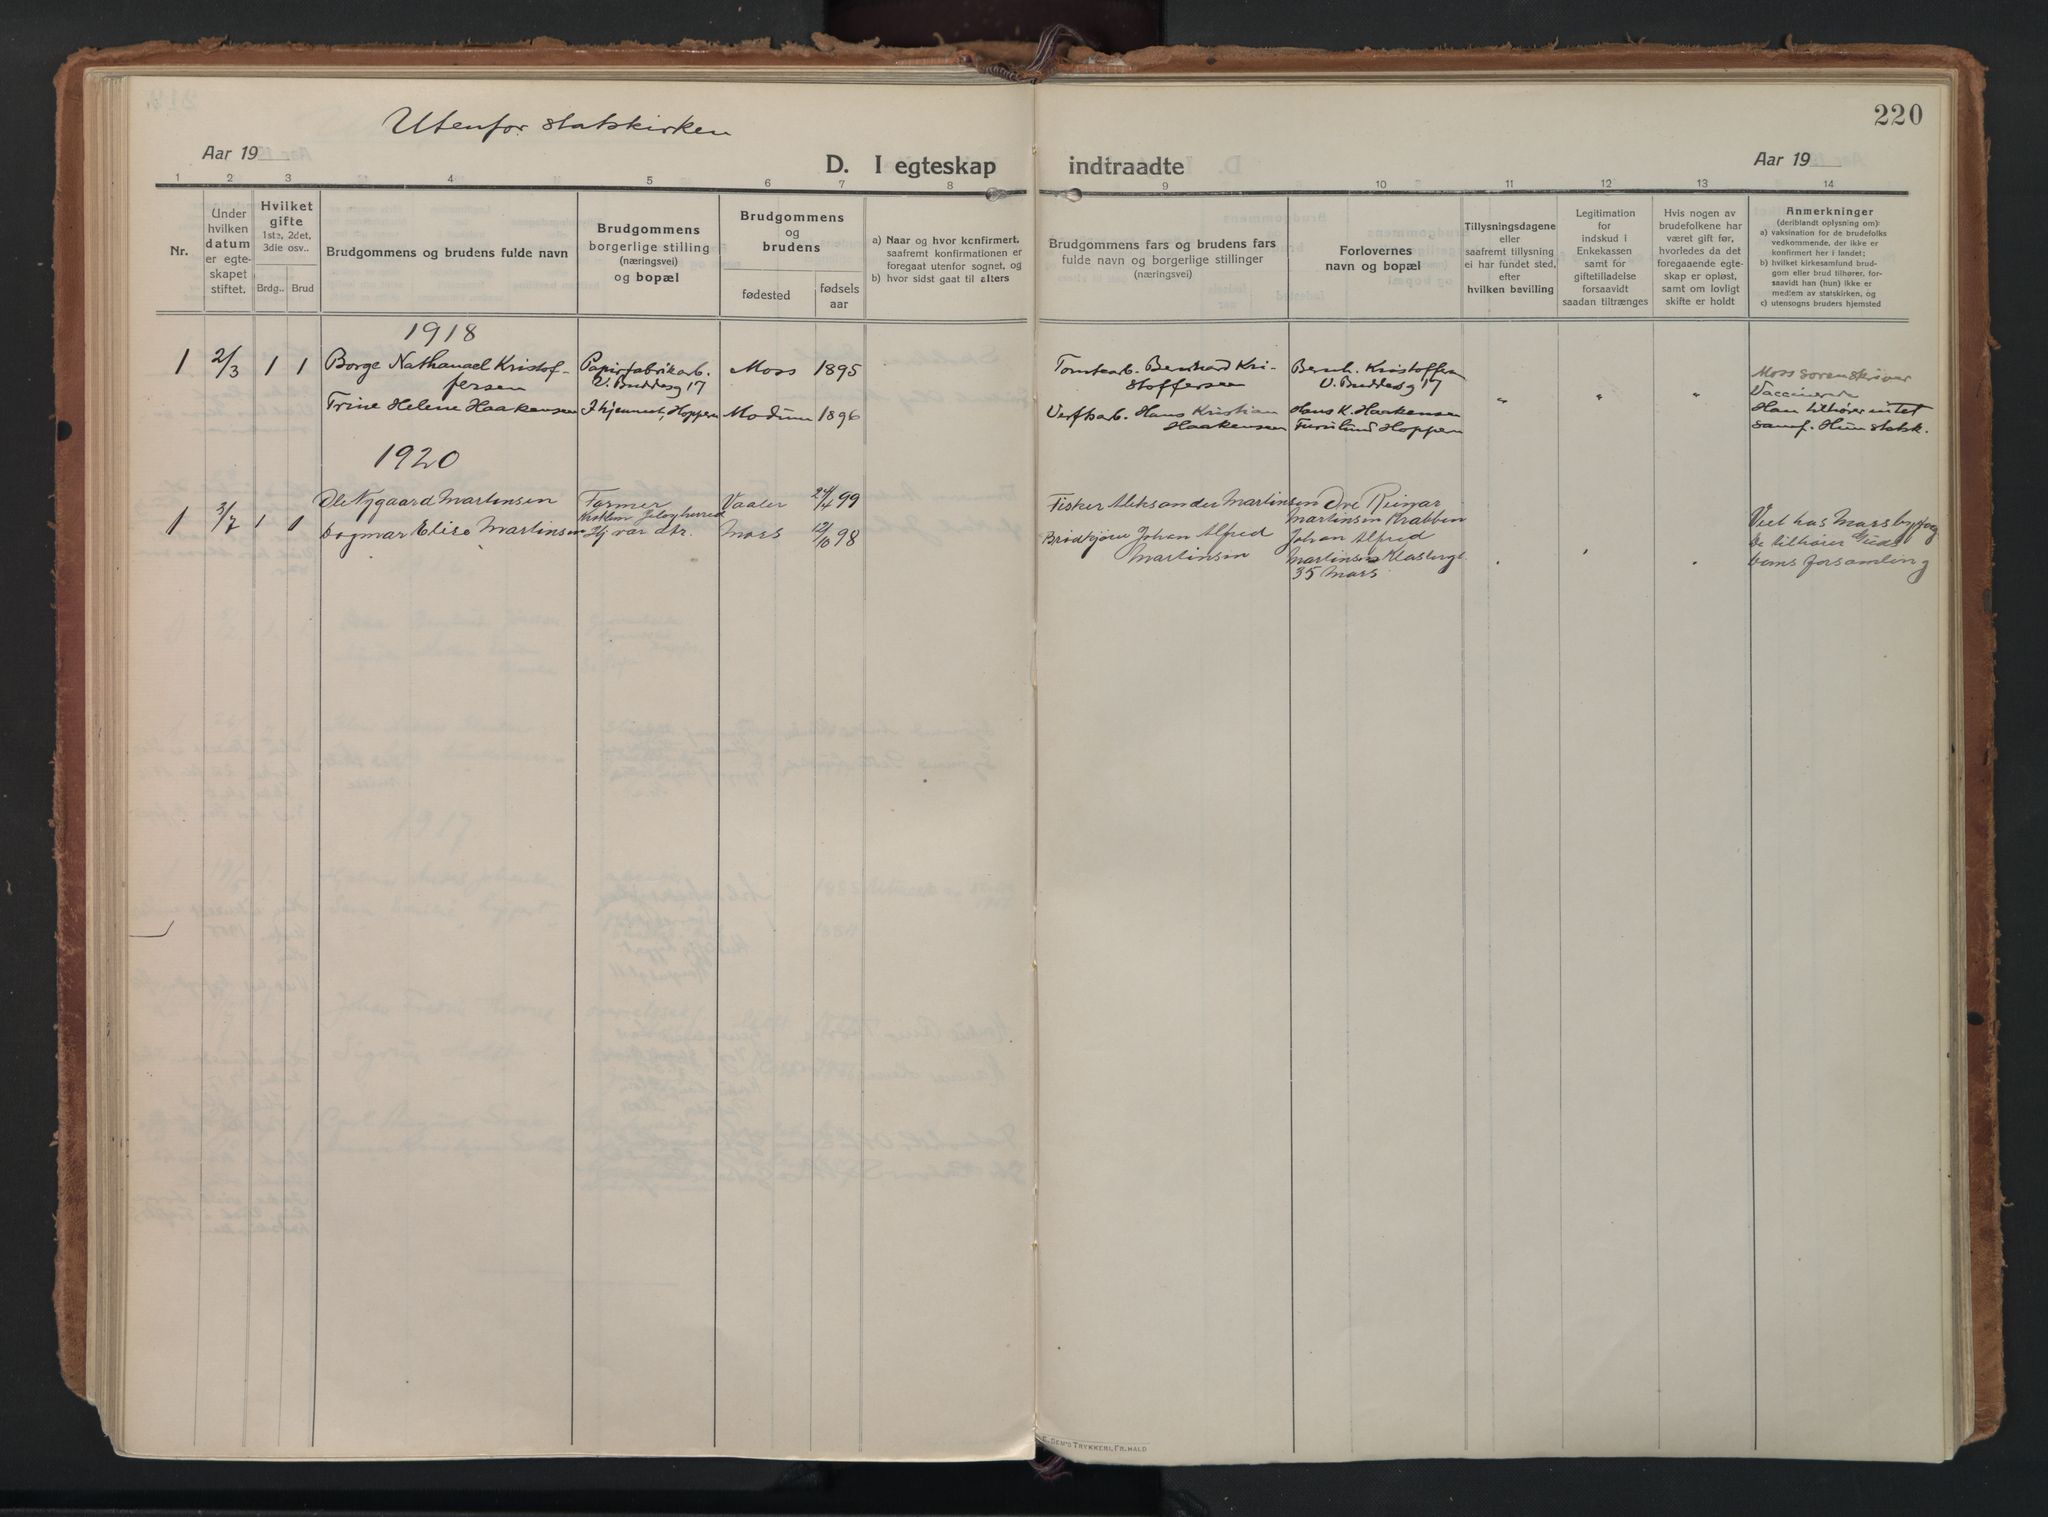 220
Utenfor statskirken
Aar 19
D. I egteskap indtraadte
Aar 19
1 2 3 4 5 6 7 8 9 10 11 12 13 14
Nr.
Under
hvilken
datum
er egte-
skapet
stiftet.
Hvilket
gifte
1ste, 2det,
3die osv..
Brdg.. Brud
Brudgommens og brudens fulde navn
Brudgommens
borgerlige stilling
(næringsvei)
og bopæl
Brudgommens
og
brudens
fødested
fødsels
aar
a) Naar og hvor konfirmert,
saafremt konfirmationen er
foregaat utenfor sognet, og
b) hvor sidst gaat til alters
Brudgommens fars og brudens fars
fulde navn og borgerlige stillinger
(næringsvei)
Forlovernes
navn og bopæl
Tillysningsdagene
eller
saafremt tillysning
ei har fundet sted,
efter
hvilken bevilling
Legitimation
for
indskud i
Enkekassen
samt for
giftetilladelse
forsaavidt
saadan tiltrænges
Hvis nogen av
brudefolkene har
været gift før,
hvorledes da det
foregaaende egte-
skap er opløst,
samt om lovligt
skifte er holdt
Anmerkninger
(deriblandt oplysning om):
a) vaksination for de brudefolks
vedkommende, der ikke er
konfirmert her i landet;
b) hvilket kirkesamfund brud-
gom eller brud tilhører, for-
saavidt han (hun) ikke er
medlem av statskirken, og
c) utensogns bruders hjemsted
1918
1 2/3 1 1 Borge Nathanael Kristof-
fersen
Papirfabrikarb.
V. Buddesg 17
Moss 1895
Tomtearb. Bernhard Kri-
stoffersen
Bernh. Kristoffersen
V. Buddesg 17
Trine Helene Haakensen
I hjemmet, Hoppern
Modum 1896
Verftsarb. Hans Kristian
Haakensen
Hans K. Haakensen
Furulund Hoppern
" " "
Moss sorenskriver
Vaccinerede
Han tilhører intet
samf. Hun statsk.
1920
1 3/7 1 1 Ole Nygaard Martinsen
Farmer
Jeløy herred
Vaaler 24/4 99
Fisker Aleksander Martinsen
Ove Reimar
Martinsen Krabben
Dagmar Elise Martinsen
Hj. vær. dtr.
Moss 12/10 98
Brødkjører Johan Alfred
Martinsen
Johan Alfred
Martinsen
35 Moss
Viet hos Moss byfog
De tilhører Guds
forsamling
E. Sem's Trykkeri, Fr.hald